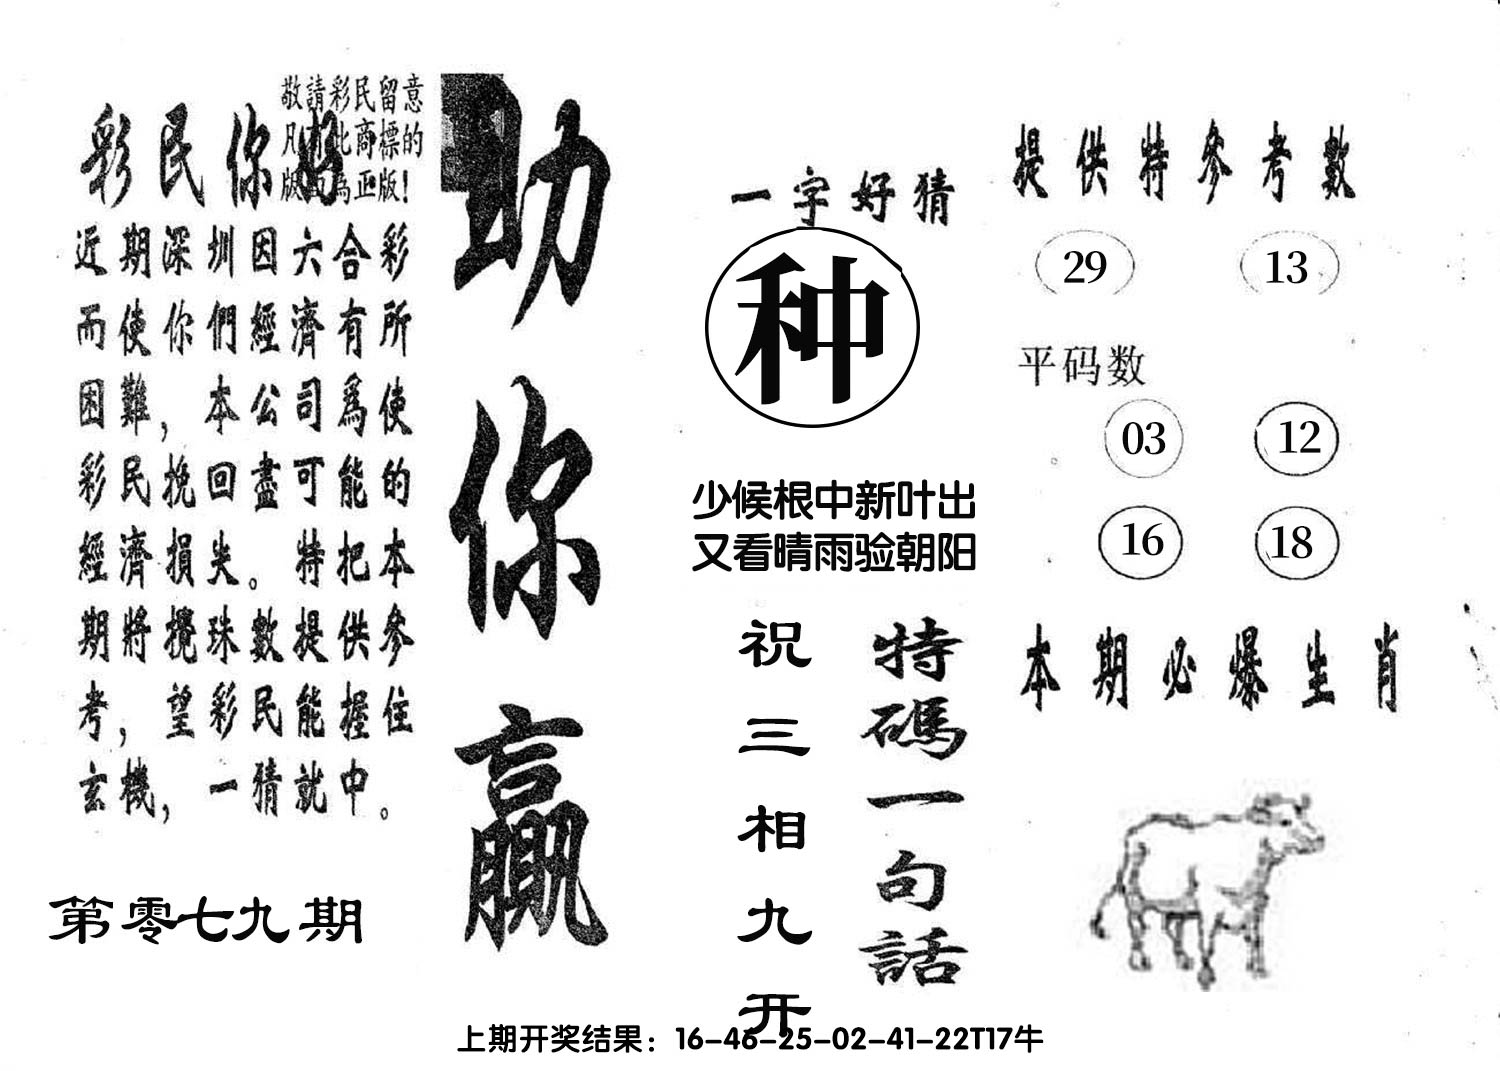 敬請彩民留意
凡有此商標的
版面為正版!
彩民你好
近期深圳因六合彩
而使你們經濟有所
困難，本公司爲使
彩民挽回盡可能的
經濟損失。特把本
期將攪珠數提供參
考，望彩民能握住
玄機，一猜就中。
第零七九期
助你贏
一字好猜
种
少候根中新叶出
又看晴雨验朝阳
特碼一句話
祝三相九开
提供特參考數
29 13
平码数
03 12
16 18
本期必爆生肖
上期开奖结果：16-46-25-02-41-22T17牛